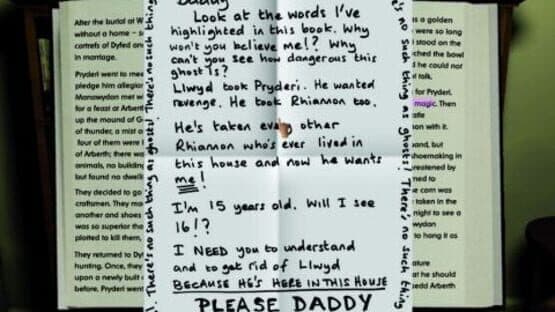 Daddy
Look at the words I've
highlighted in this book. Why
won't you believe me!? Why
can't you see how dangerous this
ghost is?
Llwyd took Pryderi. He wanted
revenge. He took Rhiannon too.
He's taken every other
Rhiannon who's ever lived in
this house and now he wants
me!
I'm 15 years old. Will I see
16!?
I NEED you to understand
and to get rid of Llwyd
BECAUSE HE'S HERE IN THIS HOUSE
PLEASE DADDY
There's no such thing as ghosts! There's no such thing
There's no such thing as ghosts! There's no such thing
After the burial at W
without a home – s
cantrefs of Dyfed an
in marriage.
Pryderi went to me
pledge him allegian
Manawydan met w
for a feast at Arberth
up the mound of G
of thunder, a mist a
four of them were l
of Arberth; there wa
animals, no building
but found no dwelli
They decided to go
craftsmen. They mad
another and shoes
was so superior tha
plotted to kill them,
They returned to Dyf
hunting. Once, they
upon a newly built c
before, Pryderi went
s a golden
were so long
stood on the
ched the bowl
d he could not
talk.
for Pryderi,
magic. Then
afe
on with it.
nd, but
shoemaking in
reatened by
ned to
e corn was
taken in the
night to see a
wydan to
to hang it as
ature
at he should
eedd Arberth